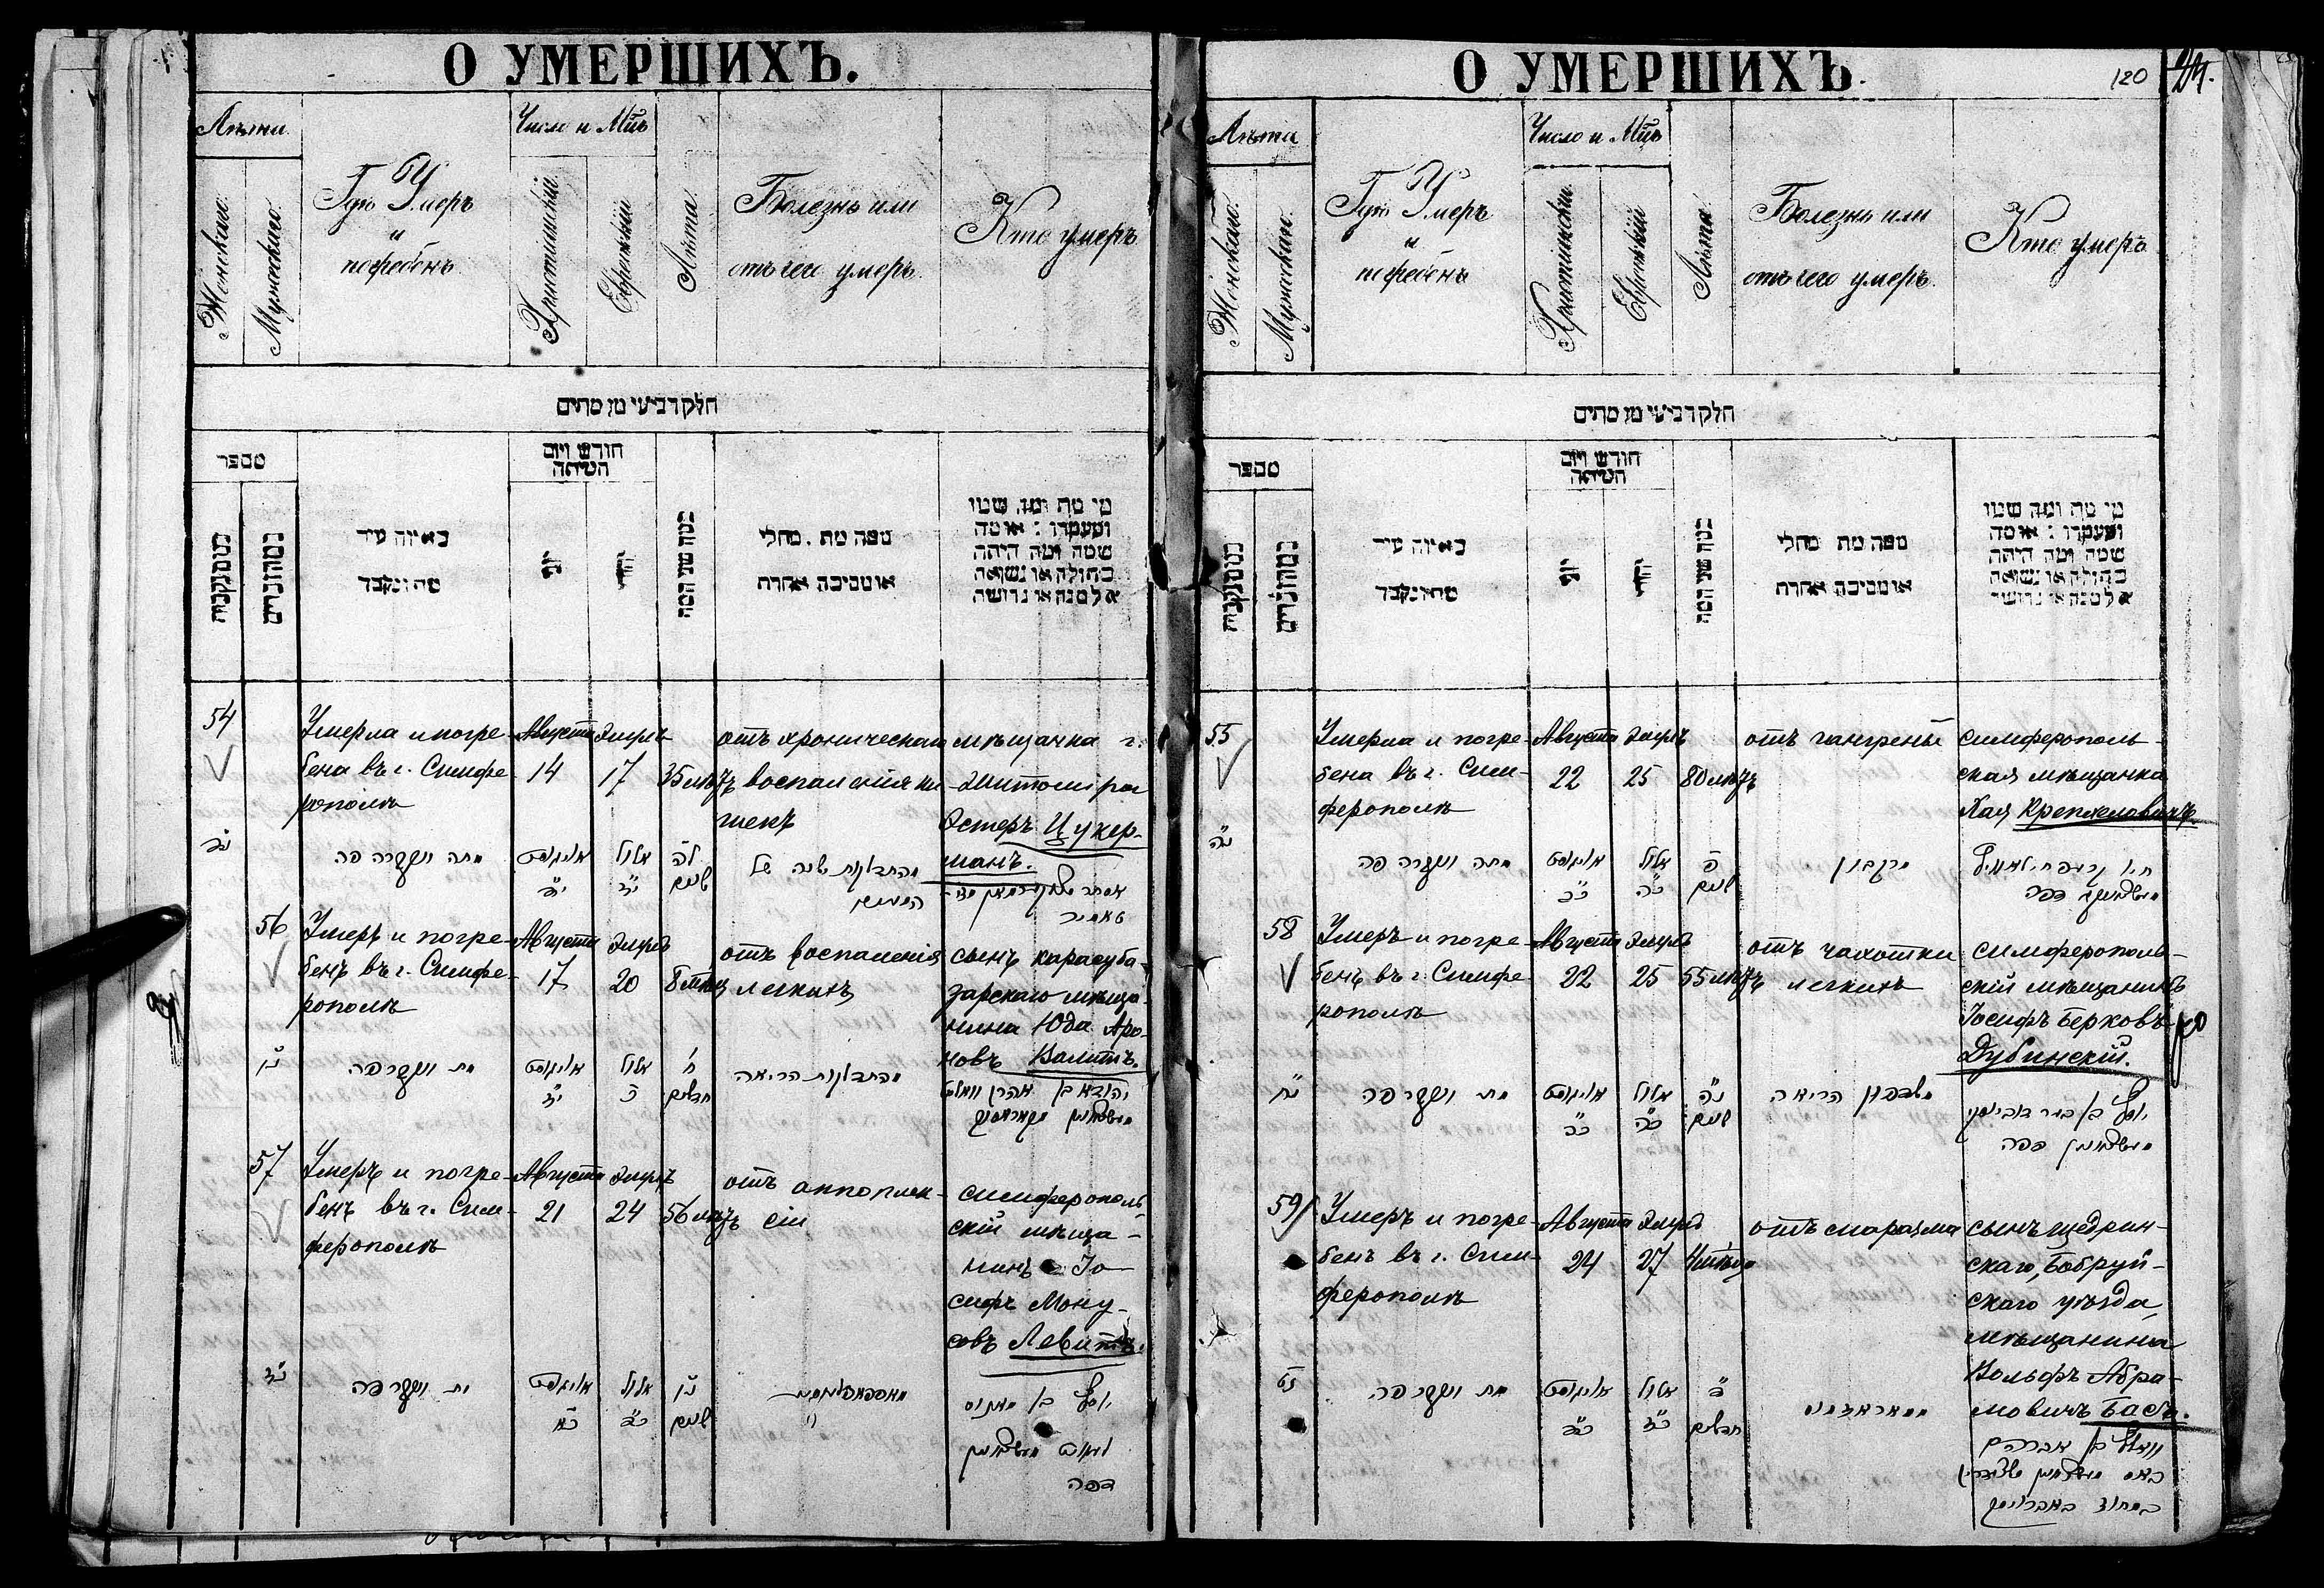 О УМЕРШИХЪ.
Лѣта
Женскаго.
Мужескаго.
Гдѣ Умеръ
и
погребенъ
Число и Мѣсяцъ
Христіанскій.
Еврейскій
Лѣта.
Болезнь или
отъ чего умеръ.
Кто умеръ
חלק רביעי מן מתים
מספר
חודש ויום
המיתה
באיזה עיר
מת ונקבר
ממה מת . מחלי
או מסיבה אחרת
מי מת ומה שמו
ומעמדו : או מה
שמה ומה היתה
בתולה או נשואה
אלמנה או גרושה
54
Умерла и погре-
бена въ г. Симфе
рополѣ
Августа
14
Элулъ
17
35 лѣтъ
отъ хроническаго
воспаленія ки
шекъ
мѣщанка г.
Житоміра
Эстеръ Цукер-
манъ.
מתה ונקברה פה
אויגוסט
י״ד
אלול
י״ז
ל״ה
שנים
56
Умеръ и погре-
бенъ въ г. Симфе-
рополѣ
Августа
17
Элулъ
20
8 мѣсяц
отъ воспаленія
легкихъ
сынъ карасуба-
зарскаго мѣща-
нина Юда Аро-
новъ Валитъ.
נ״ו
מת ונקבר פה
אויגוסט
י״ז
אלול
כ׳
ח׳
חדשים
מהתדלקות הריאה
יהודא בן אהרן וואליט
57
Умеръ и погре-
бенъ въ г. Сим-
ферополѣ
Августа
21
Элулъ
24
56 лѣтъ
отъ апоплек-
сіи
симферополь
скій мѣща-
нинъ Іо-
сифъ Мону-
совъ Левитъ.
נ״ז
מת ונקבר פה
אויגוסט
כ״א
אלול
כ״ד
נ״ו
שנים
יוסף בן מאנוס
דפה
О УМЕРШИХЪ.
120
Лѣта
Женскаго.
Мужескаго.
Гдѣ Умеръ
и
погребенъ
Число и Мѣсяцъ
Христіанскій.
Еврейскій
Лѣта
Болезнь или
отъ чего умеръ.
Кто умеръ
חלק רביעי מן מתים
מספר
חודש ויום
המיתה
באיזה עיר
מת ונקבר
ממה מת מחלי
או מסיבה אחרת
מי מת ומה שמו
ומעמדו : או מה
שמה ומה היתה
בתולה או נשואה
אלמנה או גרושה
55
Умерла и погре-
бена въ г. Сим-
ферополѣ
Августа
22
Элулъ
25
80 лѣтъ
отъ гангрены
симферополь-
ская мѣщанка
Хая
נ״ה
מתה ונקברה פה
אויגוסט
כ״ב
אלול
כ״ה
פ׳
שנים
58
Умеръ и погре-
бенъ въ г. Симфе-
рополѣ
Августа
22
Элулъ
25
55 лѣтъ
отъ чахотки
легкихъ
симферополь-
скій мѣщанинъ
Іосифъ Берковъ
Дубинскій.
נ״ח
מת ונקבר פה
אויגוסט
כ״ב
אלול
כ״ה
נ״ה
שנים
הריאה
יוסף בן בער דובינסקי
59
Умеръ и погре-
бенъ въ г. Сим-
ферополѣ
Августа
24
Элулъ
27
отъ маразма
сынъ щедрин-
скаго, Бобруй-
скаго уѣзда,
мѣщанина
Вольфъ Абра-
мовичъ Басъ.
נ״ט
מת ונקבר פה
אויגוסט
כ״ד
אלול
כ״ז
חדשים
וואלף בן אברהם